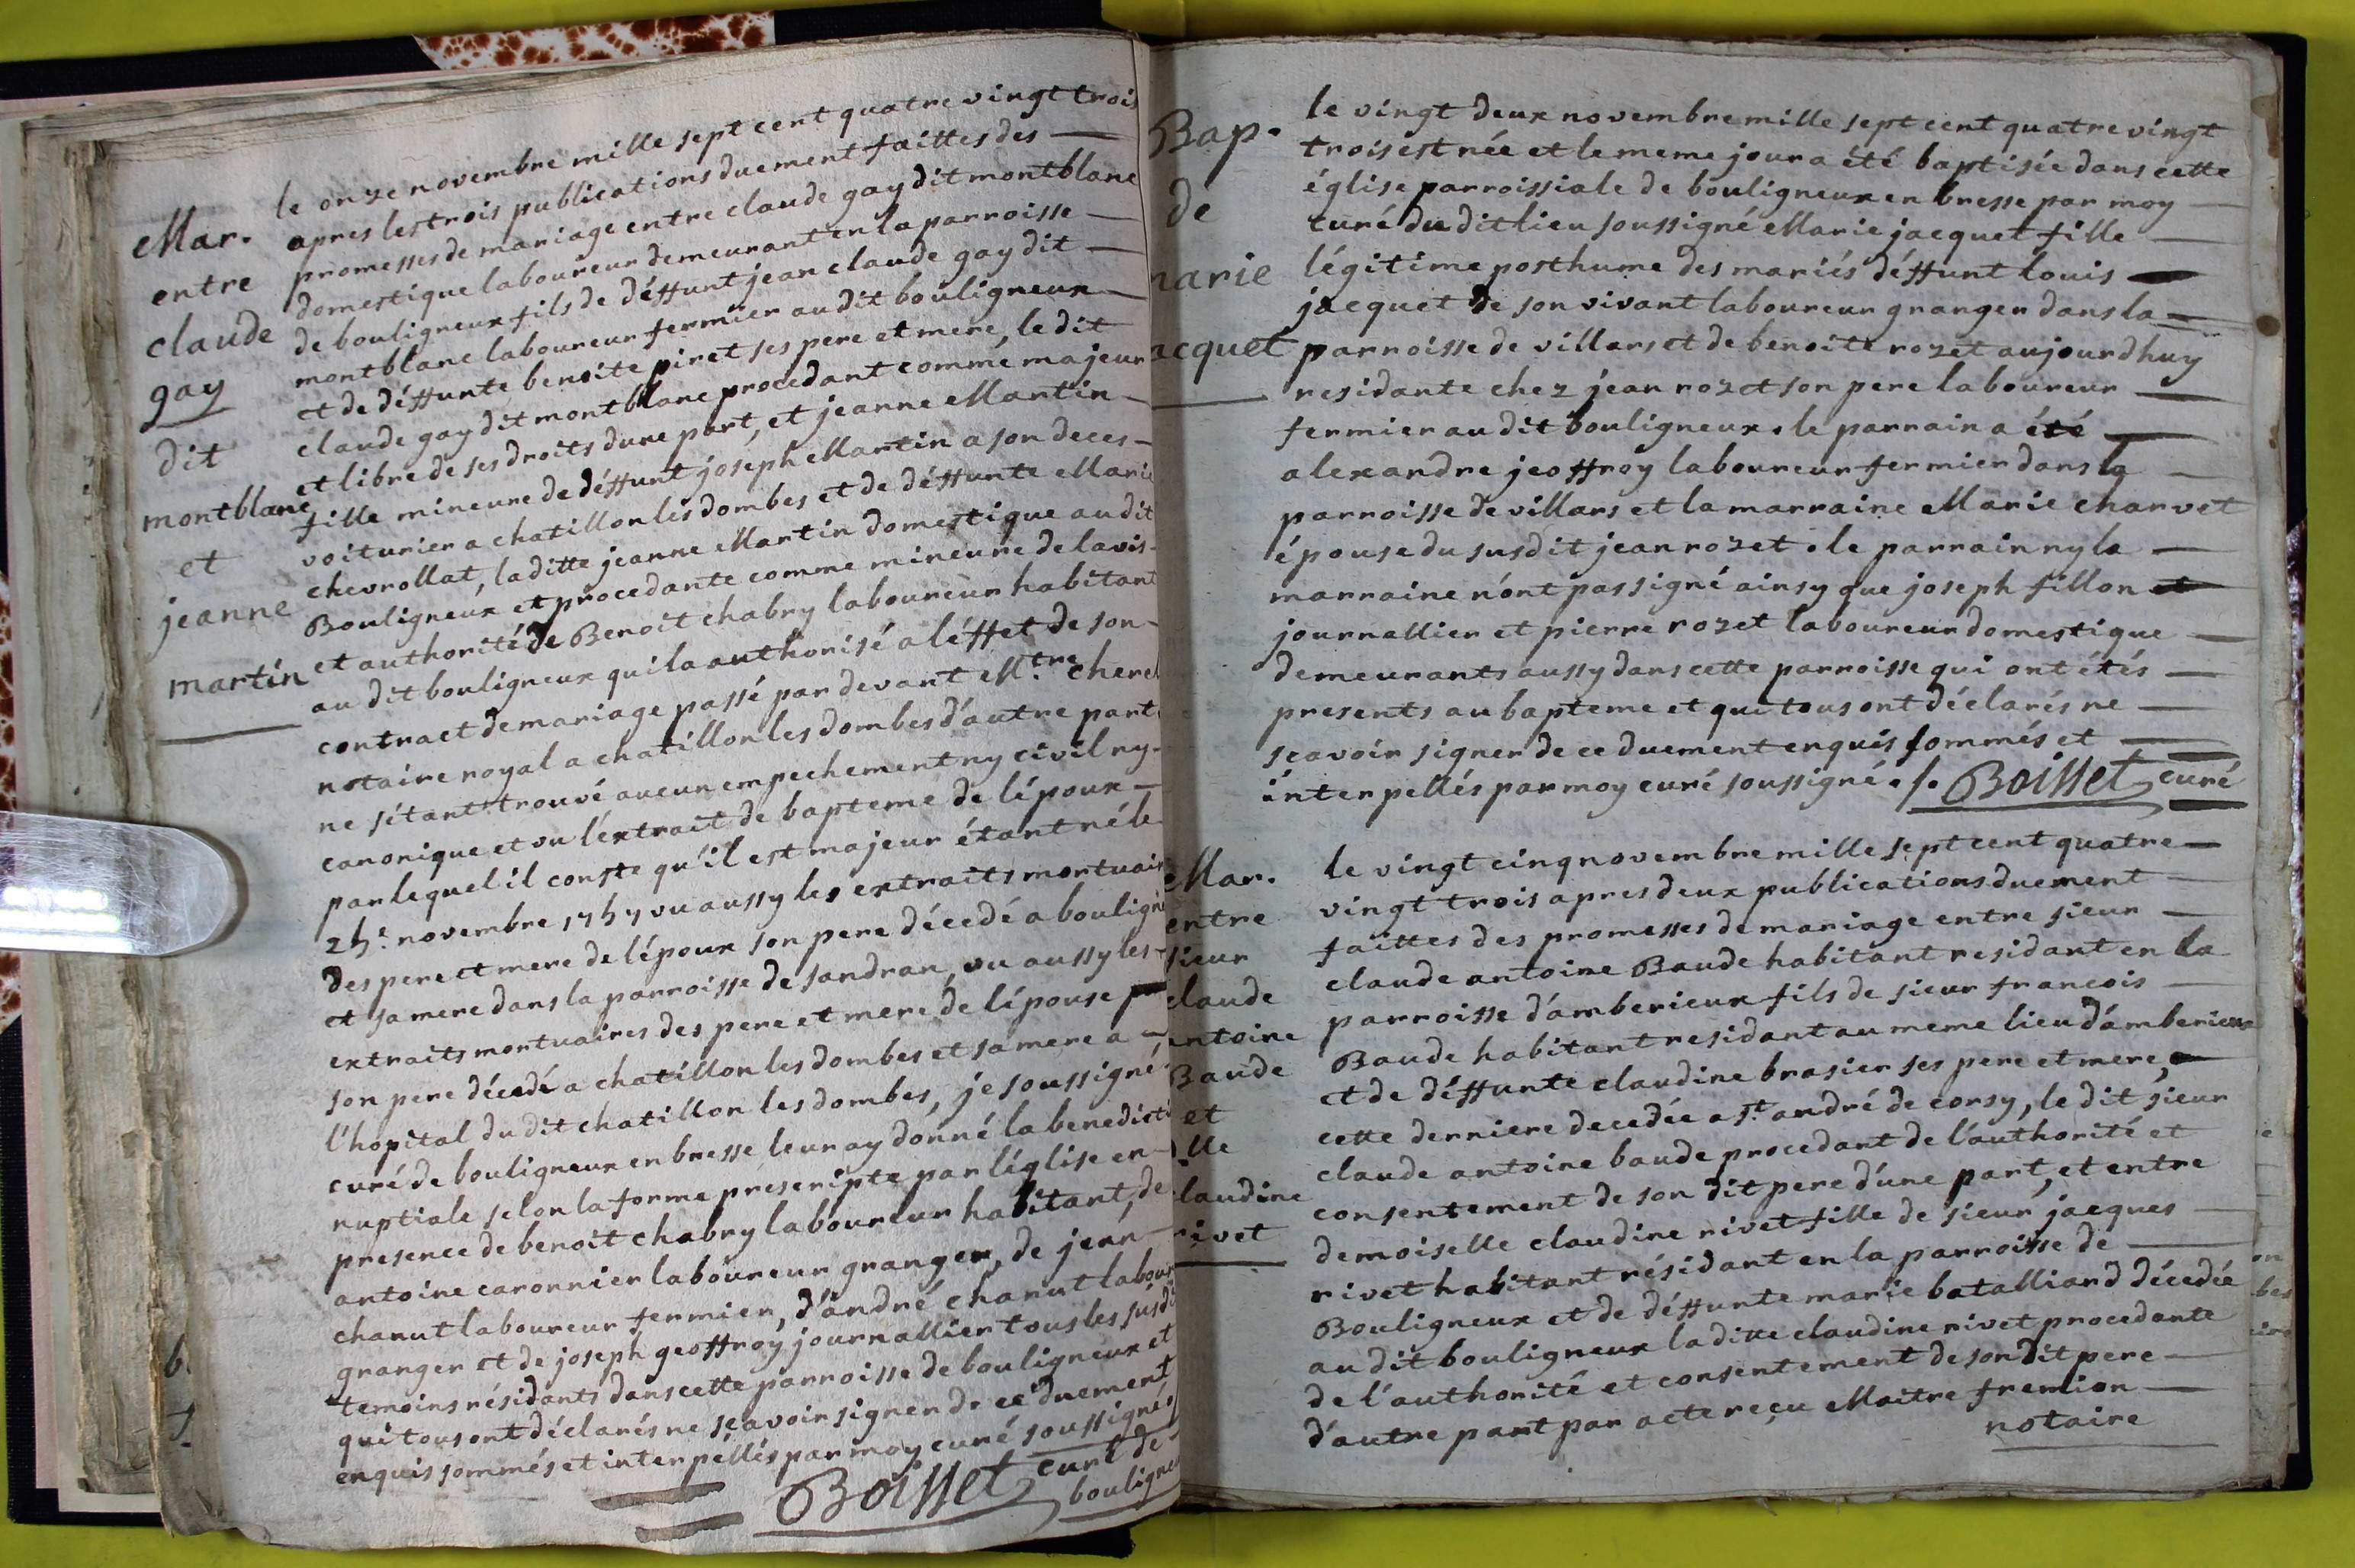 Mar.
entre
claude
gay
dit
montblanc
et
jeanne
martin
le onze novembre mille sept cent quatre vingt trois
apres les trois publications duement faittes des
promesses de mariage entre claude gay dit montblanc
domestique laboureur demeurant en la parroisse
de bouligneux fils de déffunt jean claude gay dit
montblanc laboureur fermier au dit bouligneux
et de déffunte benoite piret ses pere et mere, le dit
claude gay dit montblanc procedant comme majeur
et libre de ses droits dune part, et jeanne Martin
fille mineure de déffunt joseph Martin a son deces
voiturier a chatillon les dombes et de déffunte Marie
chevrollat, la ditte jeanne Martin domestique au dit
Bouligneux et procedante comme mineure de lavis
et authorité de Benoit chabry laboureur habitant
au dit bouligneux qui la authorisé a léffet de son
contract de mariage passé par devant M.tre cherel
notaire royal a chatillon les dombes d'autre part
ne sétant trouvé aucun empechement ny civil ny
canonique et vu léxtrait de bapteme de lépoux
par lequel il conste qu'il est majeur étant né le
25e. novembre 1757 vu aussy les extraits mortuaires
des pere et mere de lépoux son pere décedé a bouligneux
et sa mere dans la parroisse de sandran, vu aussy les
extraits mortuaires des pere et mere de lépouse
son pere décedé a chatillon les dombes et sa mere a
l'hopital du dit chatillon les dombes, je soussigné
curé de bouligneux en bresse leur ay donné la benedicti
nuptiale selon la forme prescripte par léglise en
presence de benoit chabry laboureur habitant, de
antoine caronnier laboureur granger, de jean
chanut laboureur fermier, d'andré chanut labour
granger et de joseph geoffroy journallier tous les susdi
temoins résidants dans cette parroisse de bouligneux et
qui tous ont déclarés ne sçavoir signer de ce duement
enquis sommés et interpéllés par moy curé soussigné
Boisset curé de
bouligneux
Bap.
de
marie
jacquet
le vingt deux novembre mille sept cent quatre vingt
trois est née et le meme jour a été baptisée dans cette
église parroissiale de bouligneux en bresse par moy
curé du dit lieu soussigné Marie jacquet fille
légitime posthume des mariés déffunt louis
jacquet de son vivant laboureur granger dans la
parroisse de villars et de benoite rozet aujourdhuy
residante chez jean rozet son pere laboureur
fermier au dit bouligneux. le parrain a été
alexandre jeoffroy laboureur fermier dans la
parroisse de villars et la marraine Marie charvet
épouse du susdit jean rozet. le parrain ny la
marraine n'ont pas signé ainsy que joseph fillon et
journallier et pierre rozet laboureur domestique
demeurants aussy dans cette parroisse qui ont étés
presents au bapteme et qui tous ont déclarés ne
sçavoir signer de ce duement enquis sommés et
interpellés par moy curé soussigné ./. Boisset curé
Mar.
entre
sieur
claude
antoine
Baude
et
Dlle
claudine
rivet
le vingt cinq novembre mille sept cent quatre
vingt trois apres deux publications duement
faittes des promesses de mariage entre sieur
claude antoine Baude habitant residant en la
parroisse d'amberieux fils de sieur francois
Baude habitant residant au meme lieu d'amberieux
et de déffunte claudine brasier ses pere et mere,
cette derniere decedée a st. andré de corsy, le dit sieur
claude antoine baude procedant de l'authorité et
consentement de son dit pere d'une part, et entre
demoiselle claudine rivet fille de sieur jacques
rivet habitant résidant en la parroisse de
Bouligneux et de déffunte marie batalliard décedée
au dit bouligneux la ditte claudine rivet procedante
de l'authorité et consentement de son dit pere
d'autre part par acte reçu Maitre fremion
notaire